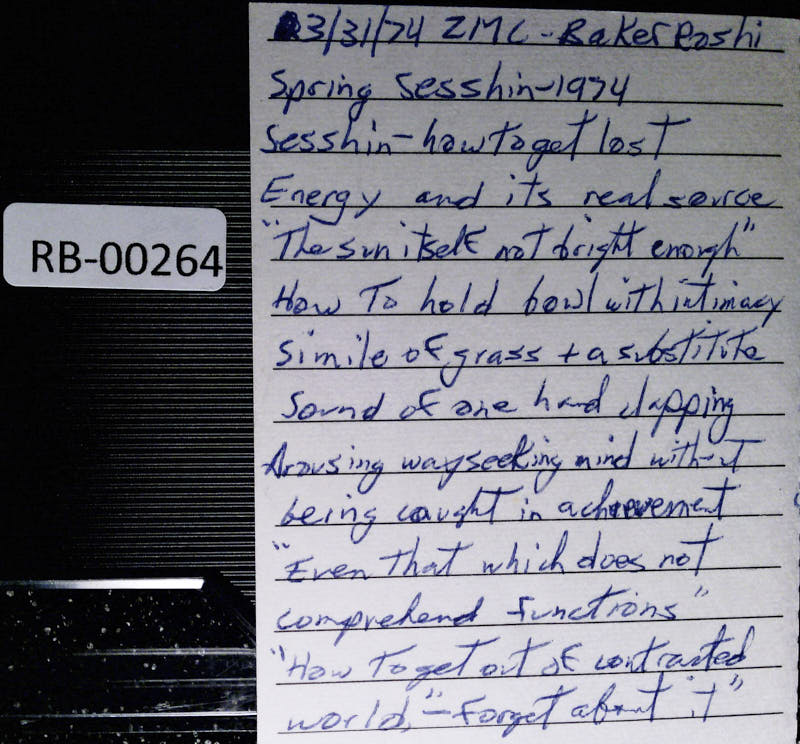 3/31/74 ZMC - Baker Roshi
Spring Sesshin-1974
Sesshin-how to get lost
Energy and its real source
RB-00264
"The sun itself not bright enough"
How To hold bowl with intimacy
Simile of grass + a substitite
Sound of one hand clapping
Arousing wayseeking mind without
being caught in achievement
"Even that which does not
comprehend functions"
"How To get out of contracted
world,"-Forget about it"